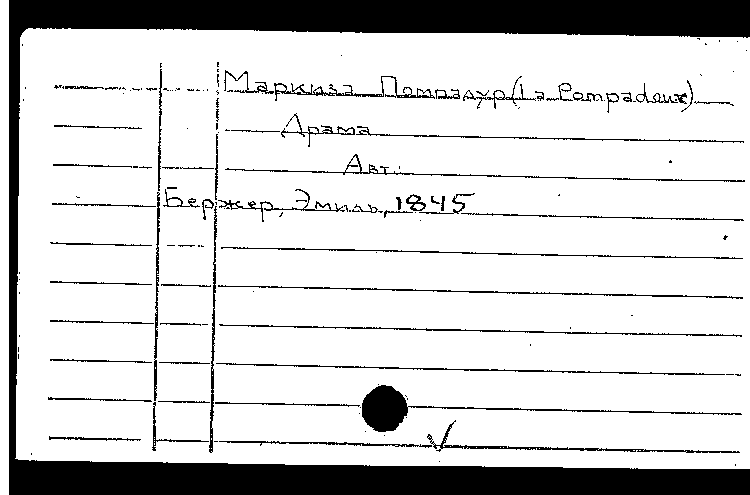 Маркиза Помпадур (La Pompadour)
Драма
Авт.:
Бержер, Эмиль, 1845